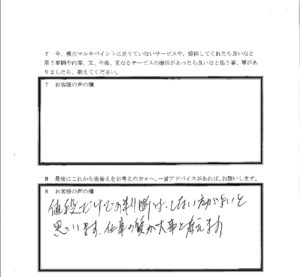 7 今、現在マルキペイントに足りていないサービスや、提供してくれたら良いなと
思う事柄や内容、又、今後、更なるサービスの提供があったら良いなと思う事、等があ
りましたら、教えてください。
7 お客様の声の欄
8 最後にこれから塗替えをお考えの方々へ、一言アドバイスがあれば、お願いします。
8 お客様の声の欄
値段だけでの判断は、しない方がいいと
思います。仕事の質が大事と考えます